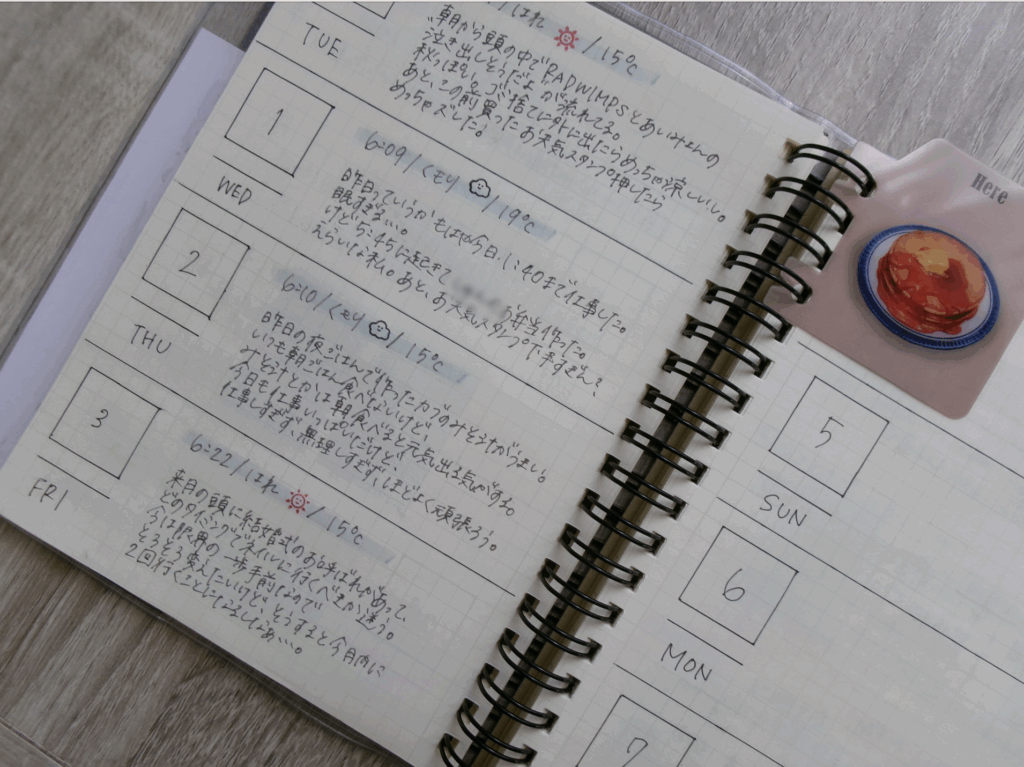 はれ / 15℃
朝から頭の中でRADWIMPSとあいみょんの
泣き出しそうだよが流れてる。
秋っぽい。ゴミ捨てに外に出たらめっちゃ涼しい。
あと、この前買ったお天気スタンプ押したら
めっちゃズレた。
TUE
1
6:09 / くもり / 19℃
昨日っていうかもはや今日、1:40まで仕事した。
眠すぎる…。
けどに5:45に起きて お弁当作った。
えらいよ私。あと、お天気スタンプ下手すぎん?
WED
2
6:10 / くもり / 15℃
昨日の夜ごはんで作ったカブのみそ汁がうまい。
いつも朝ごはん食べないけど、
みそ汁とかは朝食べると元気出る気がする。
今日も仕事いっぱいだけど、
仕事しすぎず、無理しすぎず、ほどよく頑張ろう。
THU
3
6:22 / はれ / 15℃
来月の頭に結婚式のお呼ばれがあって、
どのタイミングでネイルに行くべきか迷う。
今は限界の一歩手前なので
そろそろ変えたいけど、そうすると今月内に
2回行くことになるしなぁ…。
FRI
Here
5
SUN
6
MON
7